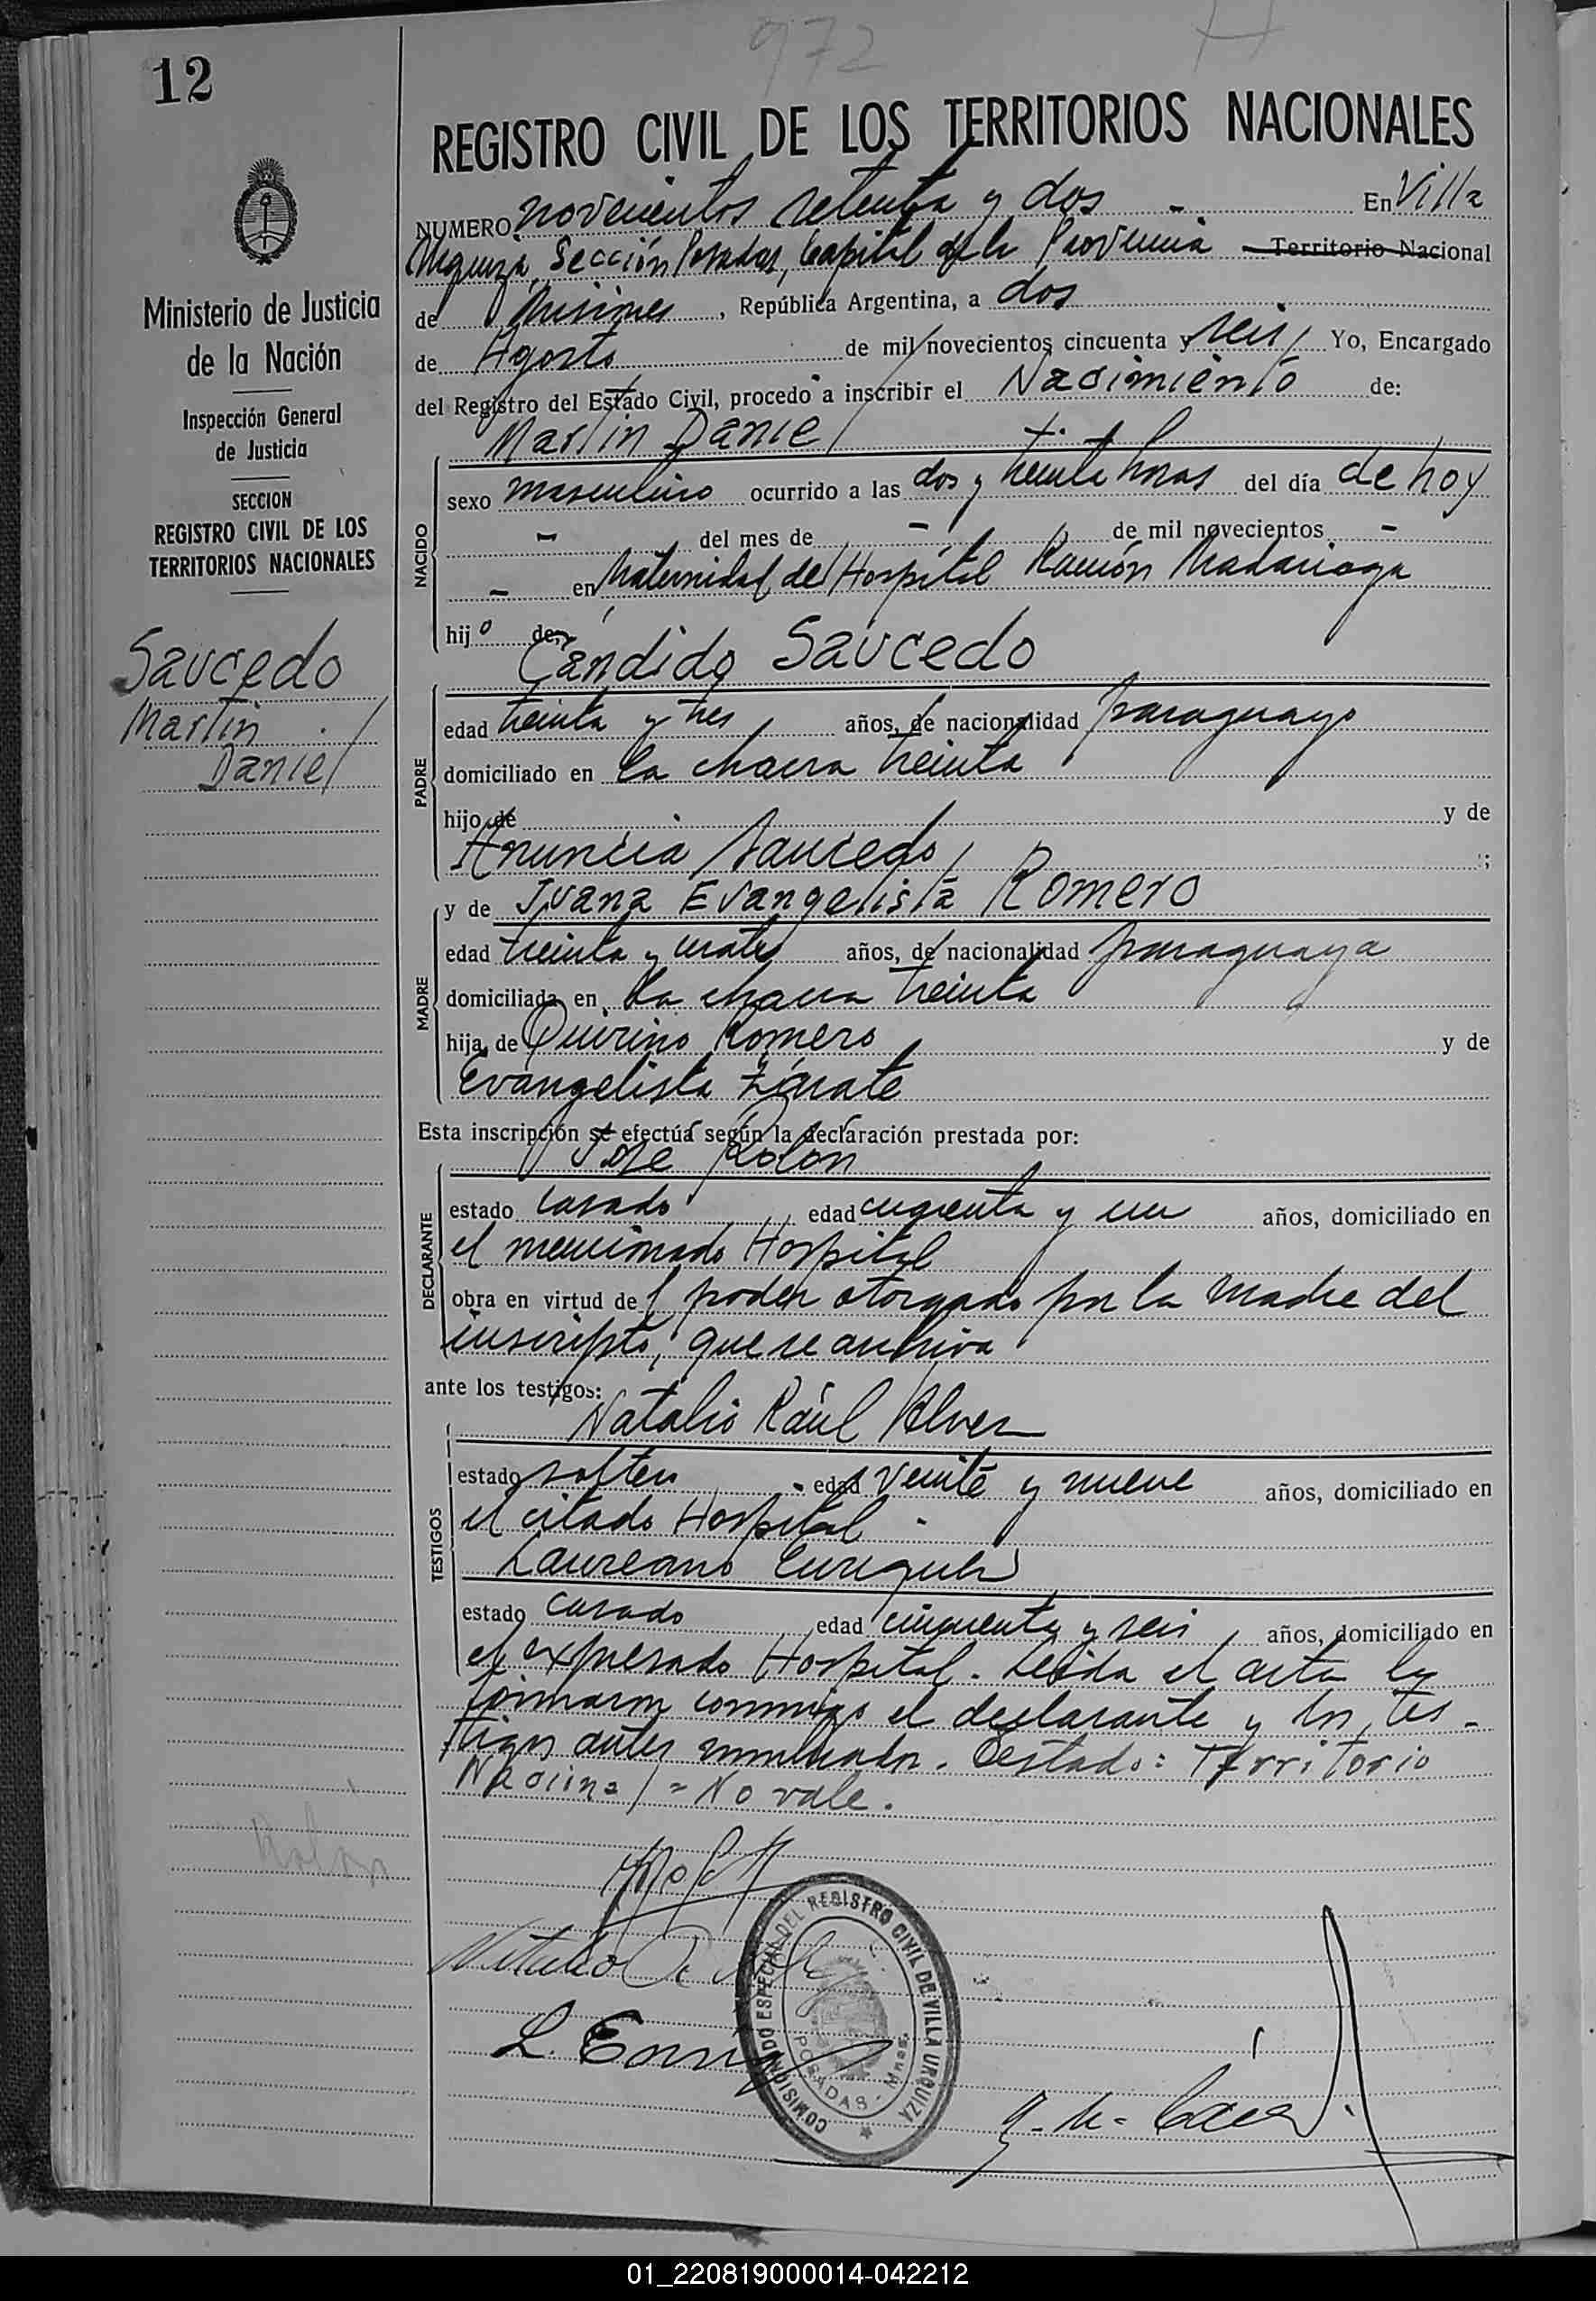 972
12
REGISTRO CIVIL DE LOS TERRITORIOS NACIONALES
NUMERO novecientos setenta y dos - En Villa
Urquiza, Sección Posadas, Capital de la Provincia Territorio Nacional
de Misiones, República Argentina, a dos
de Agosto de mil novecientos cincuenta y seis, Yo, Encargado
del Registro del Estado Civil, procedo a inscribir el Nacimiento de:
Martin Daniel
NACIDO
sexo masculino ocurrido a las dos y treinta horas del día de hoy
- del mes de - de mil novecientos -
- en Maternidad del Hospital Ramón Madariaga
hijo de
Cándido Saucedo
PADRE
edad treinta y tres años, de nacionalidad paraguayo
domiciliado en la chacra treinta
hijo de y de
Anuncia Saucedo ;
MADRE
y de Juana Evangelista Romero
edad treinta y cuatro años, de nacionalidad paraguaya
domiciliada en la chacra treinta
hija de Quirino Romero y de
Evangelista Zárate
Esta inscripción se efectúa según la declaración prestada por:
José Rolon
DECLARANTE
estado casado edad cuarenta y un años, domiciliado en
el mencionado Hospital
obra en virtud del poder otorgado por la madre del
inscripto, que se archiva
ante los testigos:
Natalio Raúl Alvez
TESTIGOS
estado soltero edad veinte y nueve años, domiciliado en
el citado Hospital.
Laureano Enriquez
estado casado edad cincuenta y seis, años, domiciliado en
el expresado Hospital. Leida el acta la
firmaron conmigo el declarante y los tes-
tigos antes nombrados. Testado: Territorio
Nacional = No vale.
L. Enriq
COMISIONADO ESPECIAL DEL REGISTRO CIVIL DE VILLA URQUIZA
POSADAS - Mnes.
Ministerio de Justicia
de la Nación
Inspección General
de Justicia
SECCION
REGISTRO CIVIL DE LOS
TERRITORIOS NACIONALES
Saucedo
Martin
Daniel
Rolon
01_220819000014-042212